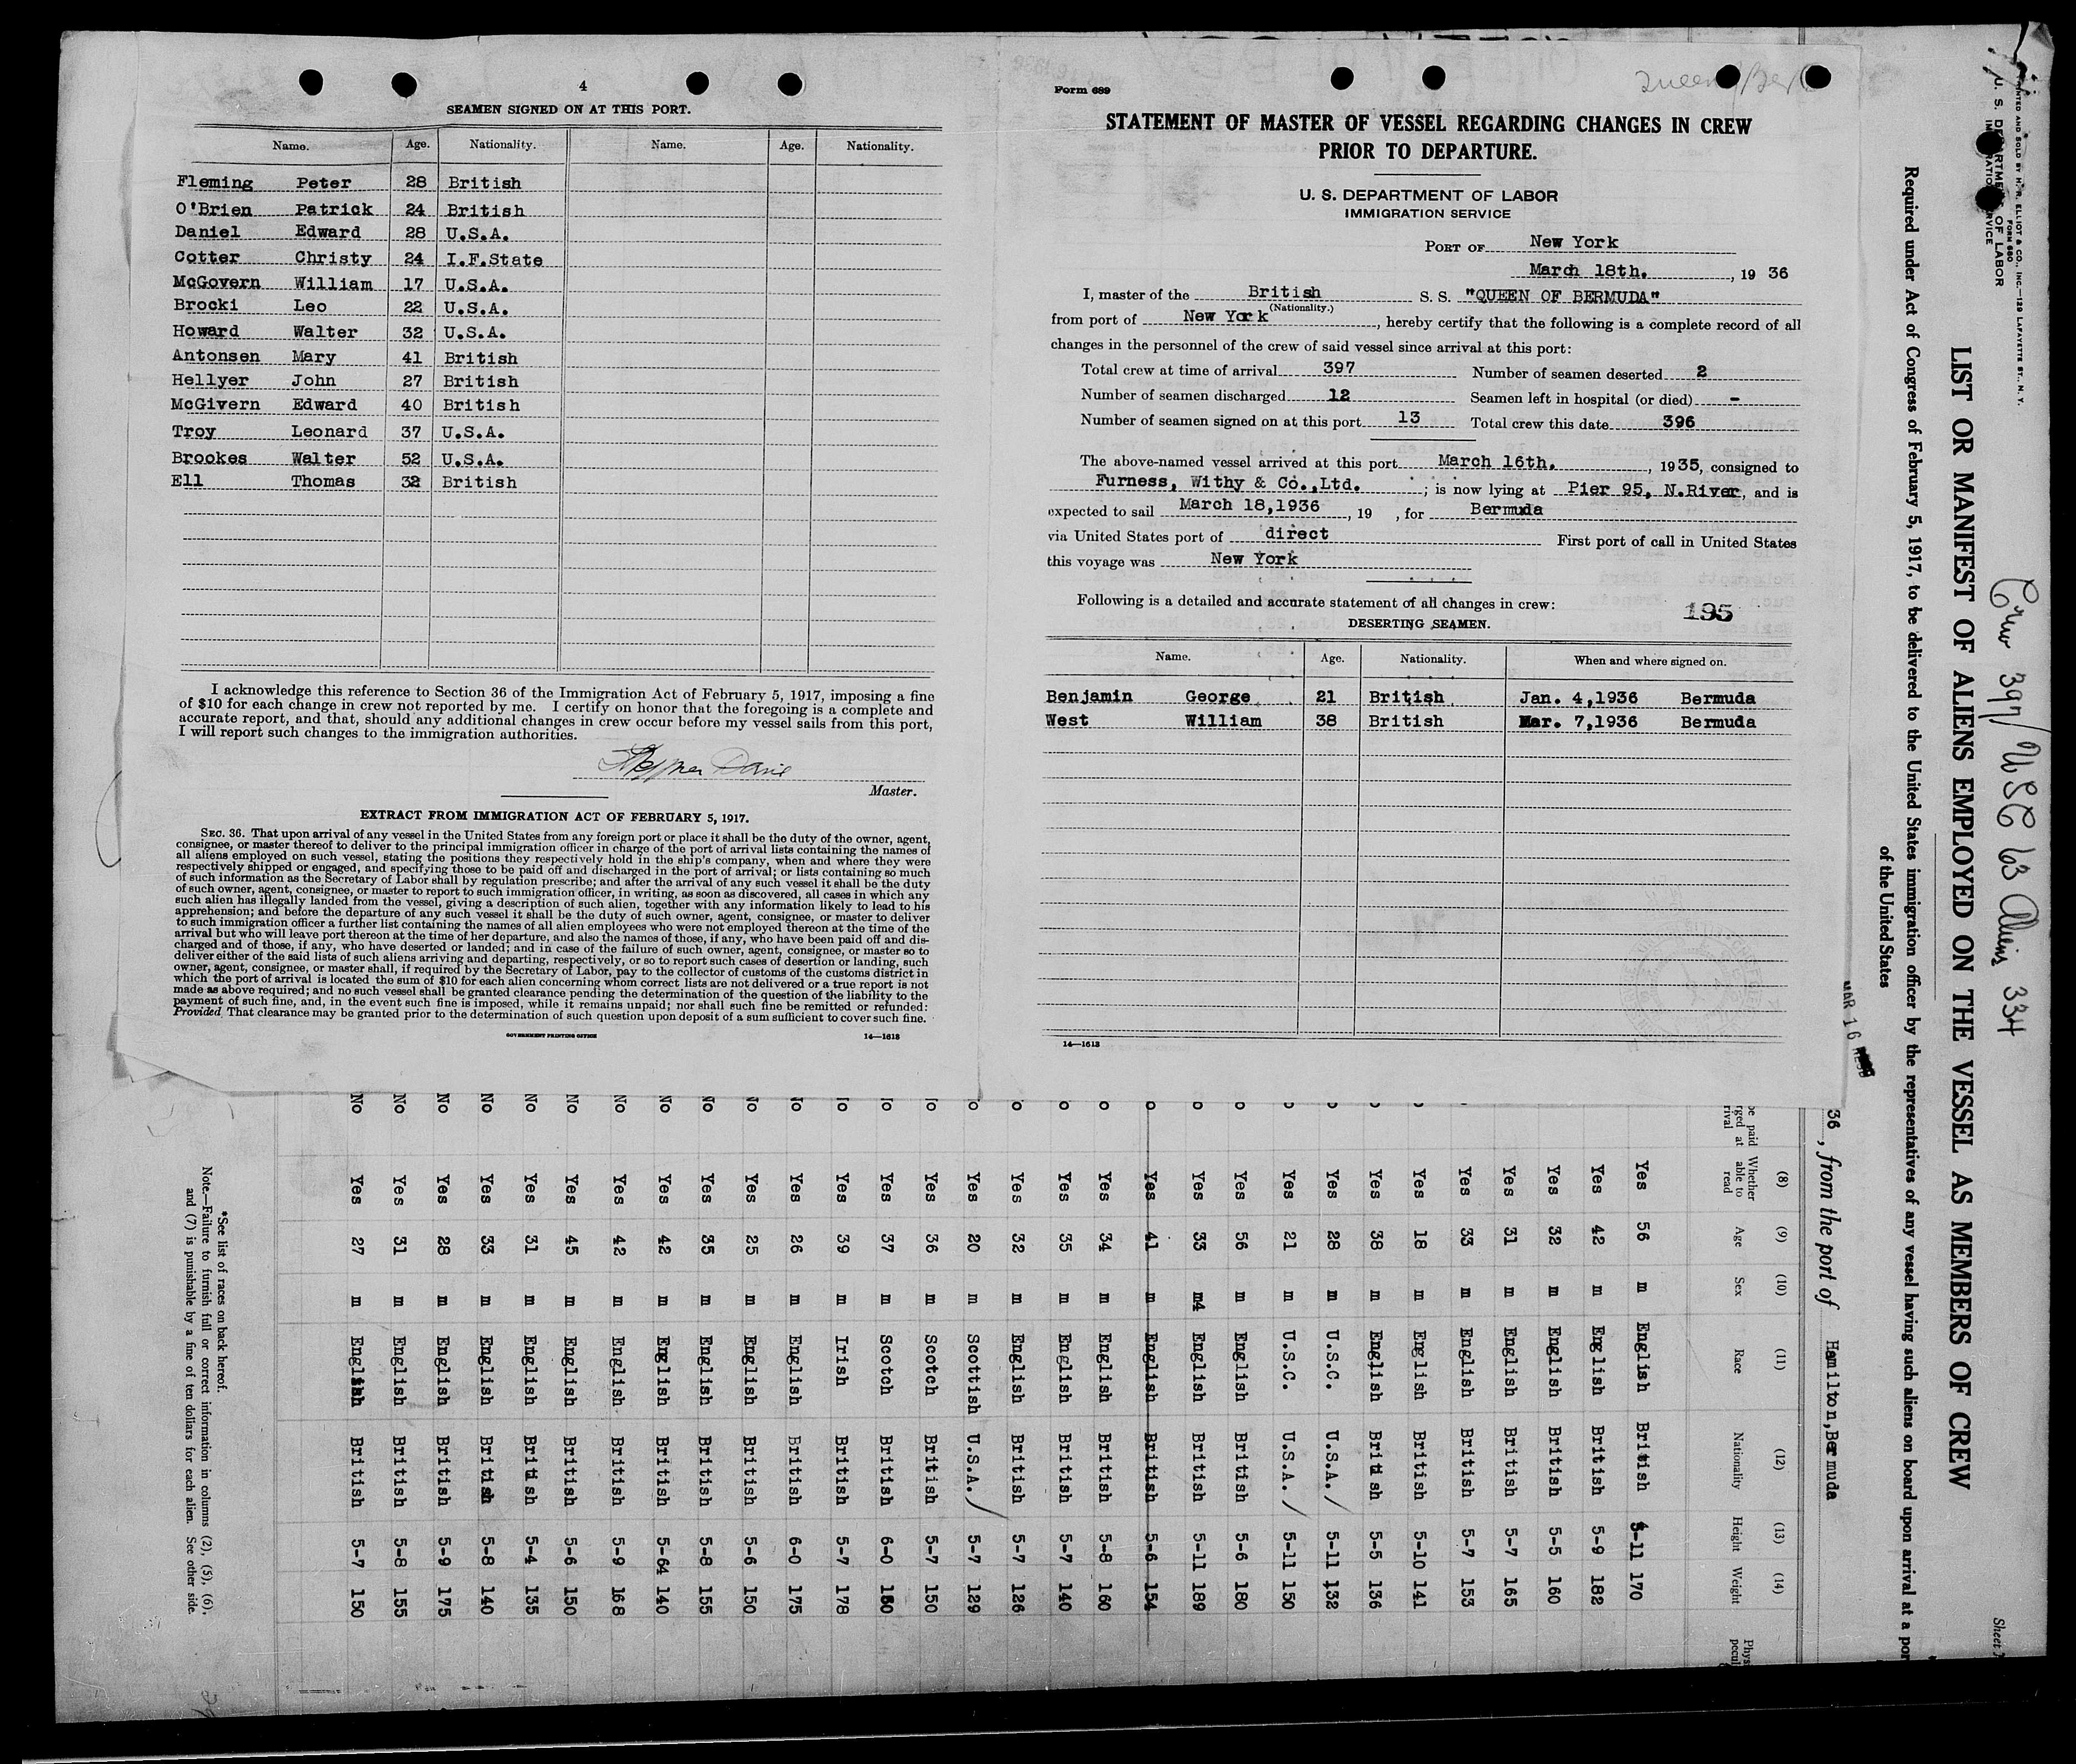 4
SEAMEN SIGNED ON AT THIS PORT.
Name. Age. Nationality. Name. Age. Nationality.
Fleming Peter 28 British
O'Brien Patrick 24 British
Daniel Edward 28 U.S.A.
Cotter Christy 24 I.F.State
McGovern William 17 U.S.A.
Brocki Leo 22 U.S.A.
Howard Walter 32 U.S.A.
Antonsen Mary 41 British
Hellyer John 27 British
McGivern Edward 40 British
Troy Leonard 37 U.S.A.
Brookes Walter 52 U.S.A.
Ell Thomas 32 British
I acknowledge this reference to Section 36 of the Immigration Act of February 5, 1917, imposing a fine
of $10 for each change in crew not reported by me. I certify on honor that the foregoing is a complete and
accurate report, and that, should any additional changes in crew occur before my vessel sails from this port,
I will report such changes to the immigration authorities.
Davis
Master.
EXTRACT FROM IMMIGRATION ACT OF FEBRUARY 5, 1917.
SEC. 36. That upon arrival of any vessel in the United States from any foreign port or place it shall be the duty of the owner, agent,
consignee, or master thereof to deliver to the principal immigration officer in charge of the port of arrival lists containing the names of
all aliens employed on such vessel, stating the positions they respectively hold in the ship's company, when and where they were
respectively shipped or engaged, and specifying those to be paid off and discharged in the port of arrival; or lists containing so much
of such information as the Secretary of Labor shall by regulation prescribe; and after the arrival of any such vessel it shall be the duty
of such owner, agent, consignee, or master to report to such immigration officer, in writing, as soon as discovered, all cases in which any
such alien has illegally landed from the vessel, giving a description of such alien, together with any information likely to lead to his
apprehension; and before the departure of any such vessel it shall be the duty of such owner, agent, consignee, or master to deliver
to such immigration officer a further list containing the names of all alien employees who were not employed thereon at the time of the
arrival but who will leave port thereon at the time of her departure, and also the names of those, if any, who have been paid off and dis-
charged and of those, if any, who have deserted or landed; and in case of the failure of such owner, agent, consignee, or master so to
deliver either of the said lists of such aliens arriving and departing, respectively, or so to report such cases of desertion or landing, such
owner, agent, consignee, or master shall, if required by the Secretary of Labor, pay to the collector of customs of the customs district in
which the port of arrival is located the sum of $10 for each alien concerning whom correct lists are not delivered or a true report is not
made as above required; and no such vessel shall be granted clearance pending the determination of the question of the liability to the
payment of such fine, and, in the event such fine is imposed, while it remains unpaid; nor shall such fine be remitted or refunded:
Provided, That clearance may be granted prior to the determination of such question upon deposit of a sum sufficient to cover such fine.
GOVERNMENT PRINTING OFFICE 14—1613
Form 689
STATEMENT OF MASTER OF VESSEL REGARDING CHANGES IN CREW
PRIOR TO DEPARTURE.
U. S. DEPARTMENT OF LABOR
IMMIGRATION SERVICE
PORT OF New York
March 18th. , 19 36
I, master of the British S. S. "QUEEN OF BERMUDA"
(Nationality.)
from port of New York , hereby certify that the following is a complete record of all
changes in the personnel of the crew of said vessel since arrival at this port:
Total crew at time of arrival 397 Number of seamen deserted 2
Number of seamen discharged 12 Seamen left in hospital (or died) -
Number of seamen signed on at this port 13 Total crew this date 396
The above-named vessel arrived at this port March 16th. , 1935, consigned to
Furness, Withy & Co.,Ltd. ; is now lying at Pier 95, N.River, and is
expected to sail March 18,1936 , 19 , for Bermuda
via United States port of direct First port of call in United States
this voyage was New York
Following is a detailed and accurate statement of all changes in crew: 195
DESERTING SEAMEN.
Name. Age. Nationality. When and where signed on.
Benjamin George 21 British Jan. 4,1936 Bermuda
West William 38 British Mar. 7,1936 Bermuda
14—1613
Crew 397/ USC 63 Aliens 334
U. S. DEPARTMENT OF LABOR
LIST OR MANIFEST OF ALIENS EMPLOYED ON THE VESSEL AS MEMBERS OF CREW
Required under Act of Congress of February 5, 1917, to be delivered to the United States immigration officer by the representatives of any vessel having such aliens on board upon arrival at a por
of the United States
MAR 16
36 , from the port of Hamilton,Bermuda
(8) (9) (10) (11) (12) (13) (14)
Whether able to read Age Sex Race Nationality Height Weight
Yes 56 m English British 5-11 170
Yes 42 m English British 5-9 182
Yes 32 m English British 5-5 160
Yes 31 m English British 5-7 165
Yes 33 m English British 5-7 153
Yes 18 m English British 5-10 141
Yes 38 m English British 5-5 136
Yes 28 m U.S.C. U.S.A./ 5-11 132
Yes 21 m U.S.C. U.S.A./ 5-11 150
Yes 56 m English British 5-6 180
Yes 33 m4 English British 5-11 189
Yes 41 m English British 5-6 154
Yes 34 m English British 5-8 160
Yes 35 m English British 5-7 140
Yes 32 m English British 5-7 126
Yes 20 m Scottish U.S.A./ 5-7 129
Yes 36 m Scotch British 5-7 150
Yes 37 m Scotch British 6-0 180
Yes 39 m Irish British 5-7 178
Yes 26 m English British 6-0 175
Yes 25 m English British 5-6 150
Yes 35 m English British 5-8 155
No Yes 42 m English British 5-64 140
No Yes 42 m English British 5-9 168
No Yes 45 m English British 5-6 150
No Yes 31 m English British 5-4 135
No Yes 33 m English British 5-8 140
No Yes 28 m English British 5-9 175
No Yes 31 m English British 5-8 155
No Yes 27 m English British 5-7 150
*See list of races on back hereof.
Note.—Failure to furnish full or correct information in columns (2), (5), (6),
and (7) is punishable by a fine of ten dollars for each alien. See other side.